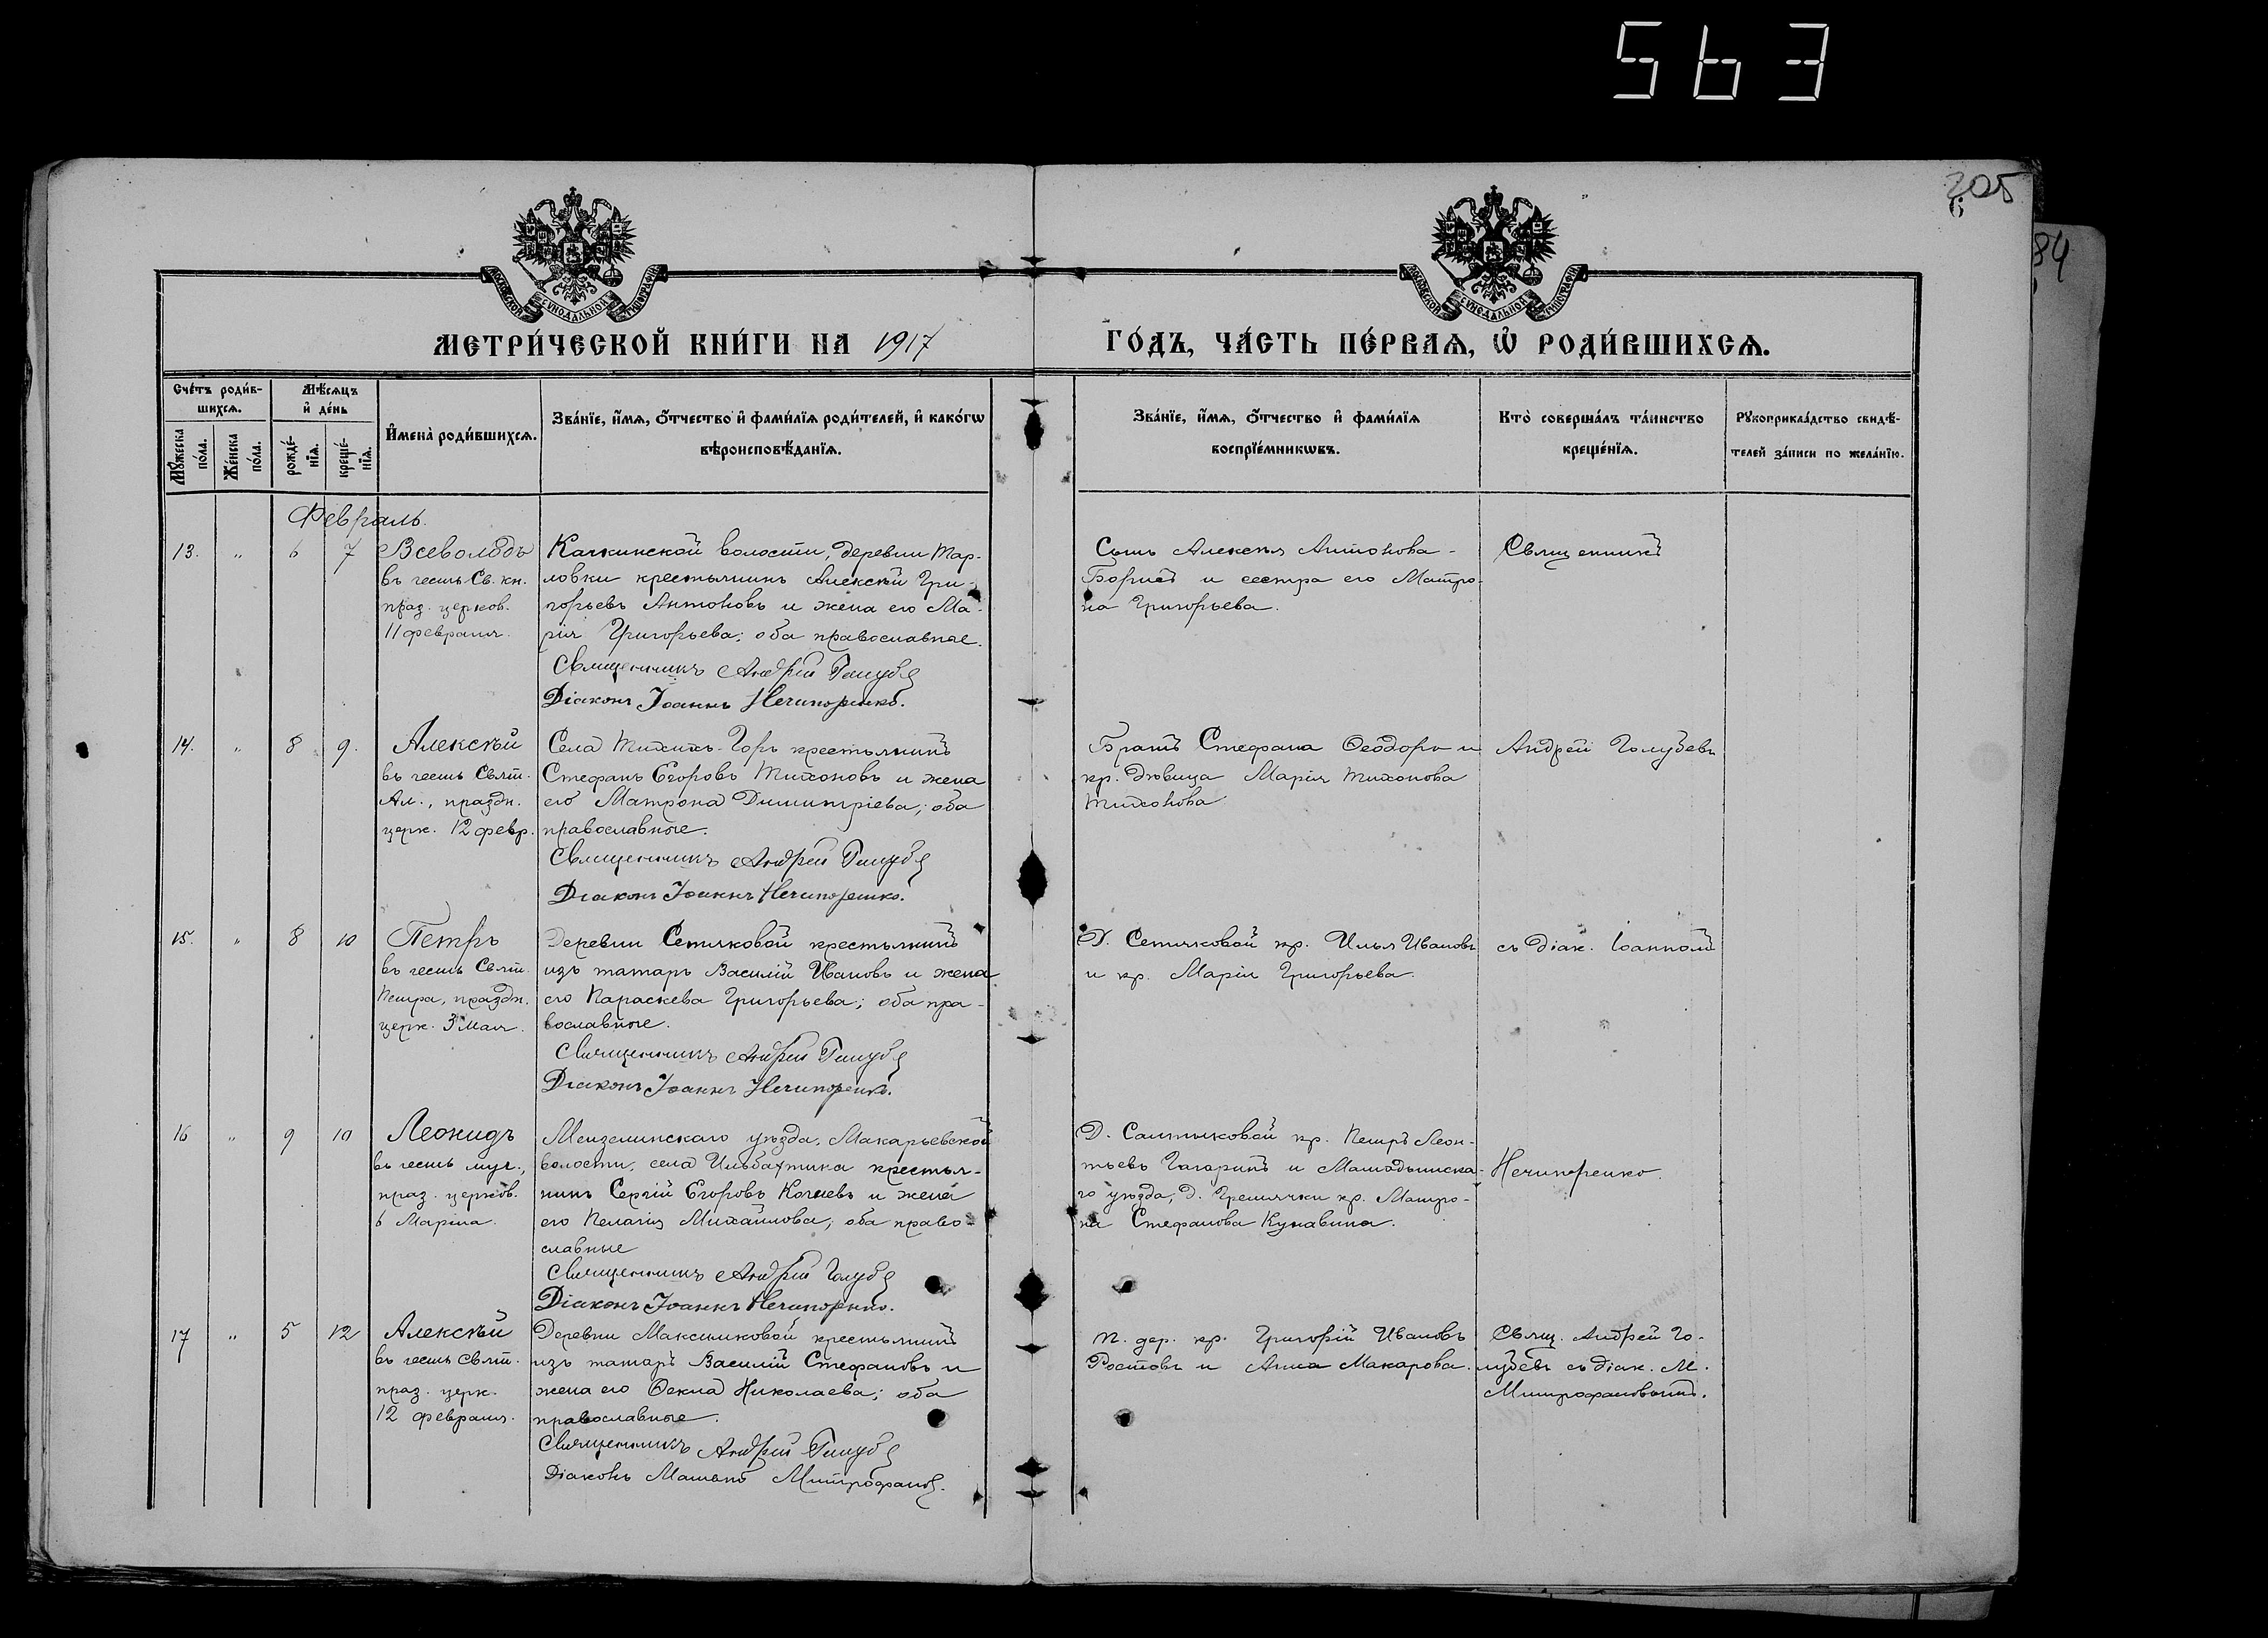 563
205
84
МОСКОВСКОЙ СѴНОДАЛЬНОЙ ТИПОГРАФІИ
МОСКОВСКОЙ СѴНОДАЛЬНОЙ ТИПОГРАФІИ
МЕТРИ́ЧЕСКОЙ КНИ́ГИ НА 1917
ГО́ДЪ, ЧА́СТЬ ПЕ́РВАѦ, Ѡ҆ РОДИ́ВШИХСѦ.
Сче́тъ роди́в-
шихсѧ.
Мѣ́сѧцъ
и҆ де́нь
И҆мена̀ роди́вшихсѧ.
Зва́нїе, и҆́мѧ, ѻ҆́тчество и҆ фами́лїѧ роди́телей, и҆ како́гѡ
вѣроисповѣ́данїѧ.
Зва́нїе, и҆́мѧ, ѻ҆́тчество и҆ фами́лїѧ
воспрїе́мникѡвъ.
Кто̀ соверша́лъ та́инство
креще́нїѧ.
Рꙋкоприкла́дство свидѣ́-
телей за́писи по жела́нїю.
Мꙋ́жеска
по́ла.
Же́нска
по́ла.
рожде́-
нїѧ.
креще́-
нїѧ.
Февраль.
13. " 6 7 Всеволодъ
въ честь Св. кн.
праз. церков.
11 февраля.
Качкинской волости, деревни Тар-
ловки крестьянинъ Алексѣй Гри-
горьевъ Антоновъ и жена его Ма-
рія Григорьева; оба православные.
Священникъ Андрей Голубе
Діаконъ Іоаннъ Нечипоренко.
Сынъ Алексѣя Антонова -
Борисъ и сестра его Матро-
на Григорьева.
Священникъ
14. " 8 9. Алексѣй
въ честь Свят.
Ал., праздн.
церк. 12 февр.
Села Тихихъ-Горъ крестьянинъ
Стефанъ Егоровъ Тихоновъ и жена
его Матрона Димитріева; оба
православные.
Священникъ Андрей Голубе
Діаконъ Іоаннъ Нечипоренко.
Братъ Стефана Ѳеодоръ и
кр. дѣвица Марія Тихонова
Тихонова
Андрей Голубевъ
15. " 8 10 Петръ
въ честь Свят.
Петра, праздн.
церк. 3 Мая.
Деревни Сетяковой крестьянинъ
изъ татаръ Василій Ивановъ и жена
его Параскева Григорьева; оба пра-
вославные.
Священникъ Андрей Голубе
Діаконъ Іоаннъ Нечипоренко.
Д. Сетяковой кр. Илья Ивановъ
и кр. Марія Григорьева.
съ діак. Іоанномъ
16 " 9 10 Леонидъ
въ честь муч.,
праз. церков.
6 Марта.
Мензелинскаго уѣзда, Макарьевской
волости, села Ильбахтина крестья-
нинъ Сергій Егоровъ и жена
его Пелагія Михайлова; оба право-
славные
Священникъ Андрей Голубе
Діаконъ Іоаннъ Нечипоренко.
Д. Салтыковой кр. Петръ Леон-
тьевъ Гагаринъ и Мамадышска-
го уѣзда, Д. Гремячки кр. Матро-
на Стефанова Кунавина.
Нечипоренко.
17 " 5 12 Алексѣй
въ честь Свят.
праз. церк.
12 февраля.
Деревни Максимковой крестьянинъ
изъ татаръ Василій Стефановъ и
жена его Ѳекла Николаева; оба
православные.
Священникъ Андрей Голубе
Діаконъ Митрофанов.
т. дер. кр. Григорій Ивановъ
Ростовъ и Анна Макарова.
Свящ. Андрей Го-
лубевъ съ діак. М.
Митрофановымъ.